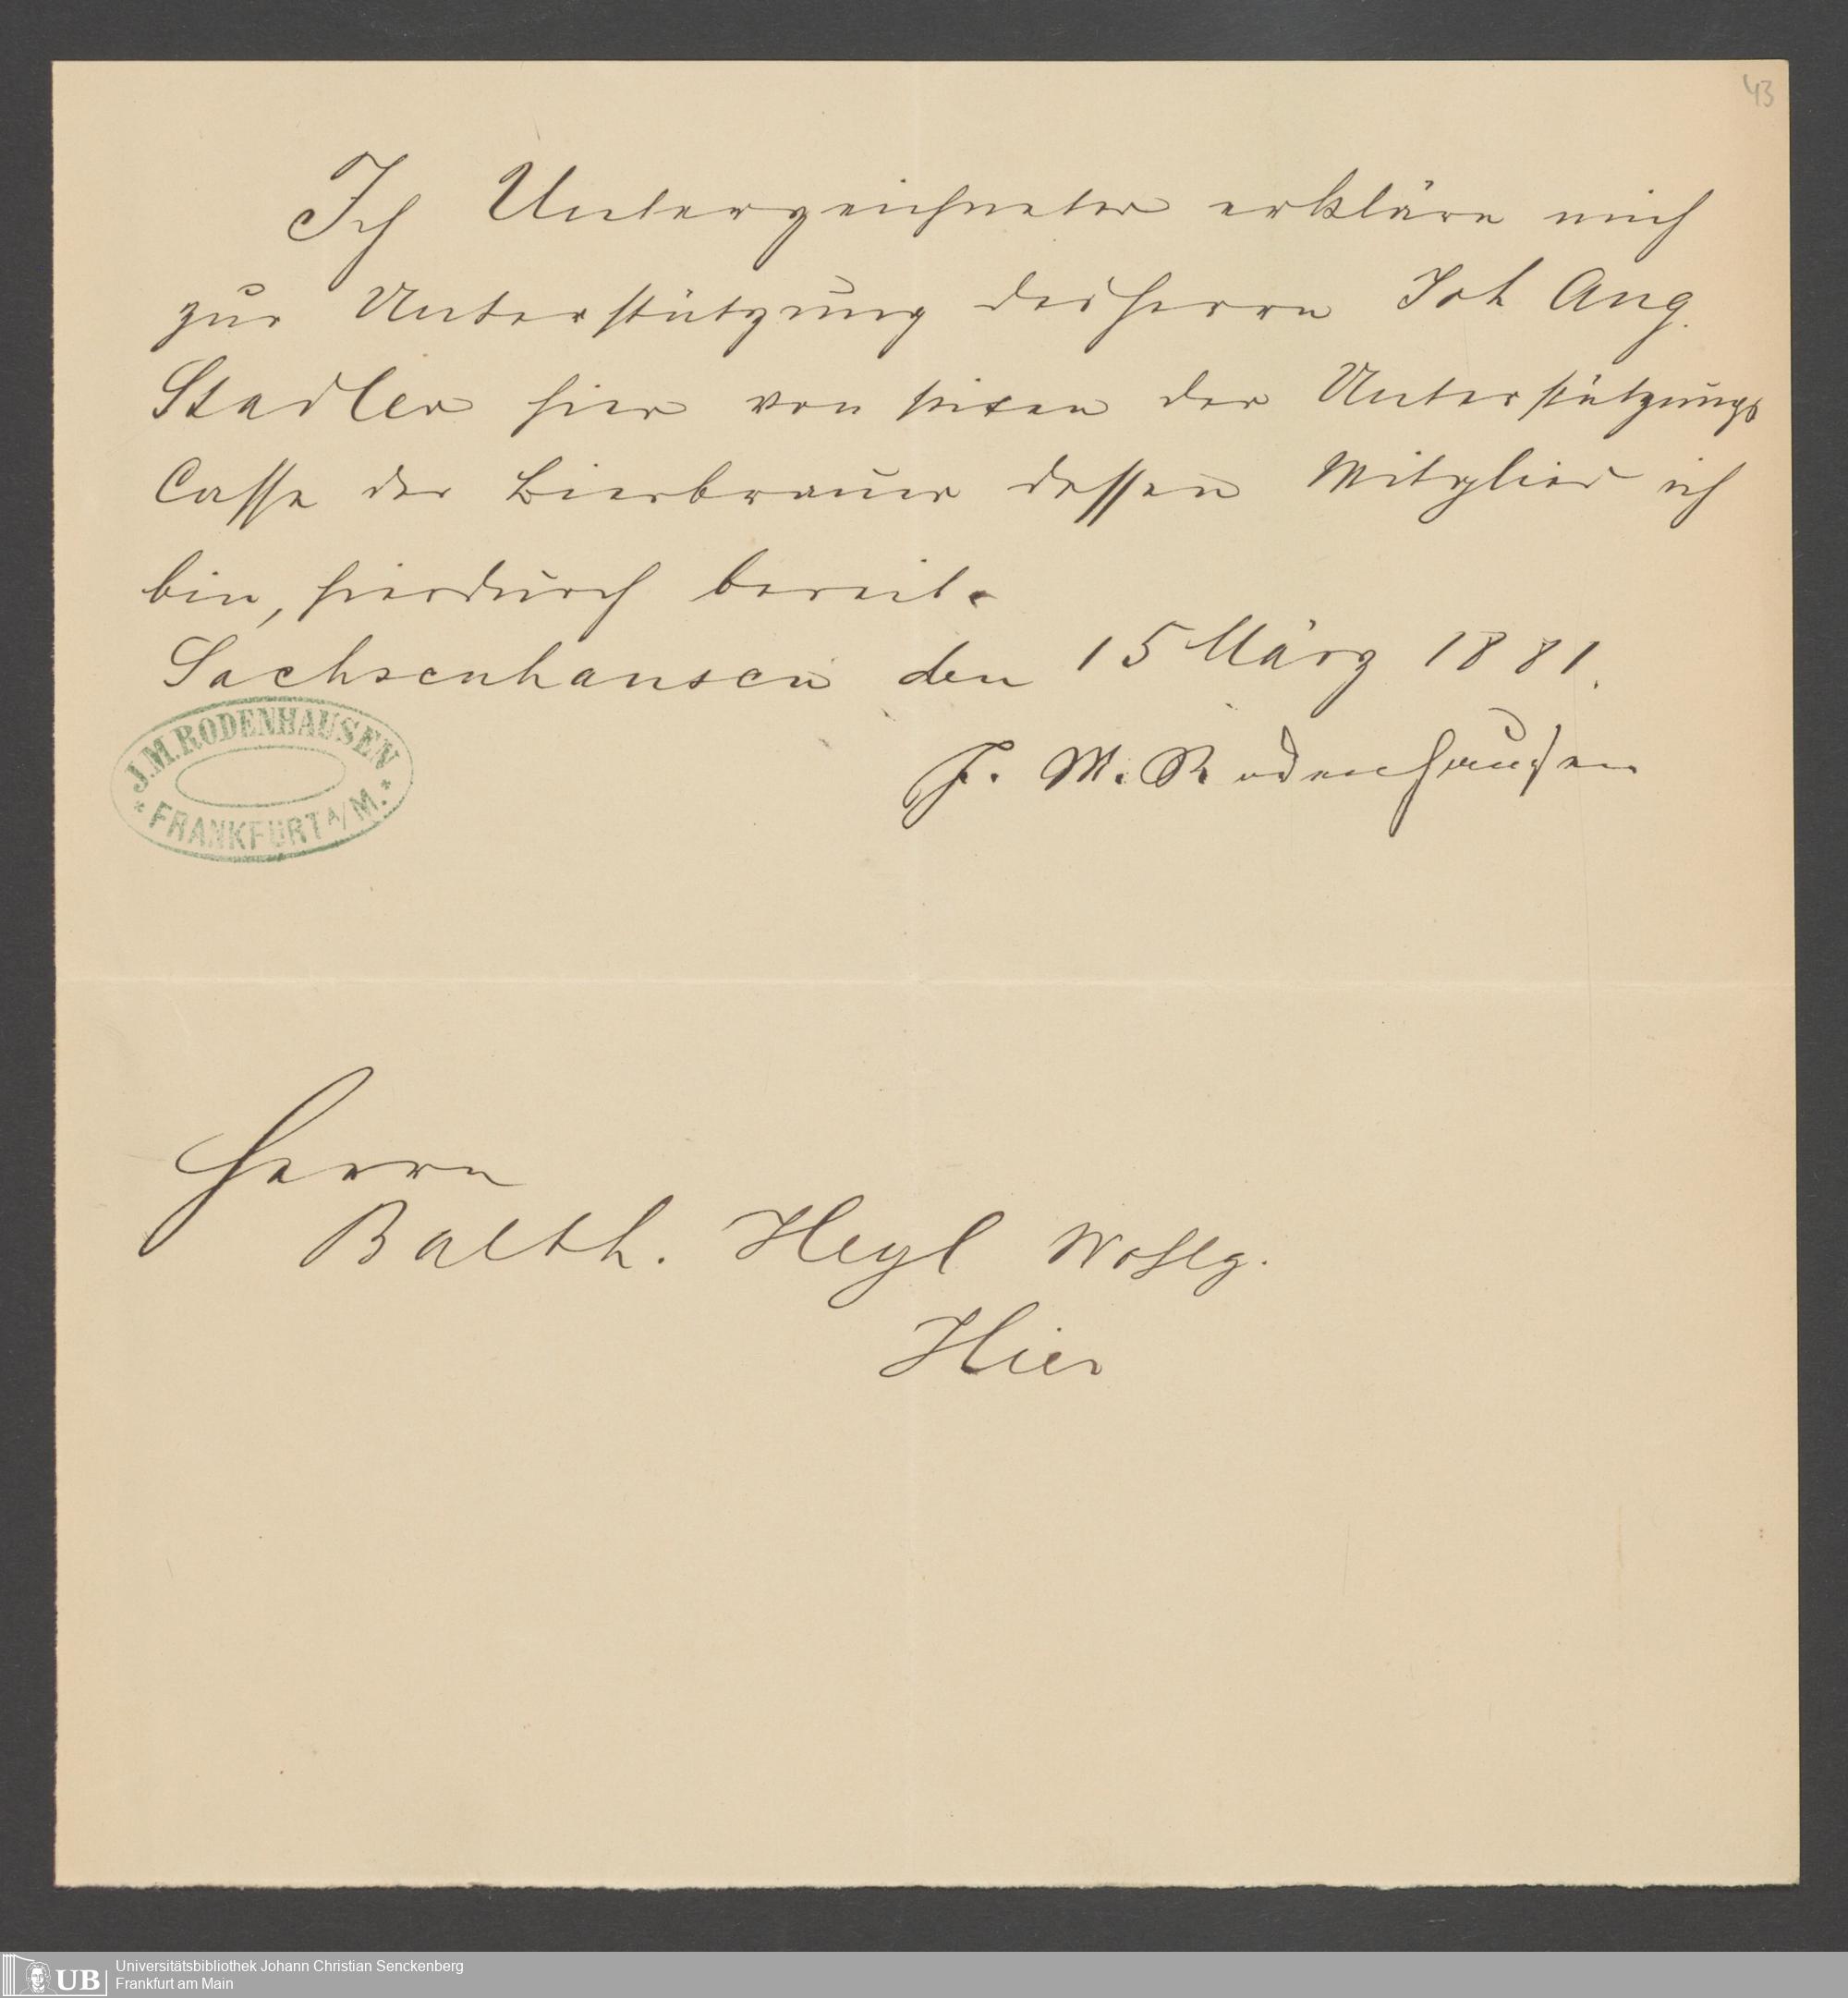 43
Ich Unterzeichneter erkläre mich
zur Unterstützung des Herrn Joh Aug.
Stadler hier von seiten der Unterstützungs
Casse der Bierbrauer dessen Mitglied ich
bin, hierdurch bereit.
Sachsenhausen den 15 März 1881.
J. M. Rodenhausen
J.M. RODENHAUSEN
* FRANKFURT A/M. *
Herrn
Balth. Heyl Wohlg.
Hier
UB
Universitätsbibliothek Johann Christian Senckenberg
Frankfurt am Main